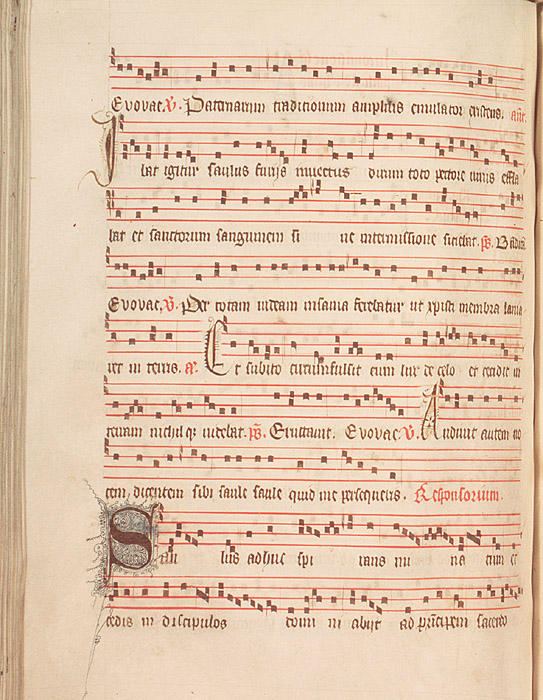 Evovae. V. Paternarum traditionum amplius emulator existens. ant.
Ibat igitur saulus furijs invectus dirum toto pectore virus effla
bat et sanctorum sanguinem si ne intermissione siciebat. ps. Beati
Evovae. V. Per totam iudeam insania ferebatur ut xpisti membra lania
ret in terris. a. Et subito circumfulsit eum lux de celo et cecidit in
terram nichil q; videbat. ps. Eructavit. Evovae. V. Audivit autem vo
cem dicentem sibi saule saule quid me persequeris. Responsorium.
Sau lus adhuc spi rans mi na rum et
cedis in discipulos domini abijt ad principem sacerdo